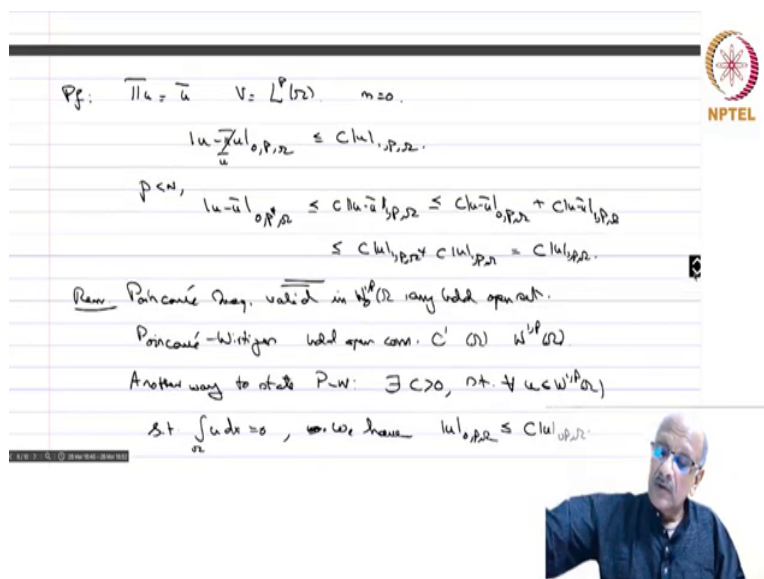 Pf: Π̄u = ū V = L^p(Ω). m=0.
|u-Π̄u|_{0,p,Ω} ≤ C|u|_{1,p,Ω}.
ū
p<N, |u-ū|_{0,p*,Ω} ≤ C‖u-ū‖_{1,p,Ω} ≤ C|u-ū|_{0,p,Ω} + C|u-ū|_{1,p,Ω}
≤ C|u|_{1,p,Ω} + C|u|_{1,p,Ω} = C|u|_{1,p,Ω}.
Rem. Poincaré Ineq. valid in W_0^{1,p}(Ω) any bdd open set.
Poincaré-Wirtinger bdd open conn. C^1 (Ω) W^{1,p}(Ω)
Another way to state P-W: ∃ C>0, s.t. ∀ u∈W^{1,p}(Ω)
s.t. ∫_Ω u dx =0, we have |u|_{0,p,Ω} ≤ C|u|_{1,p,Ω}.
NPTEL